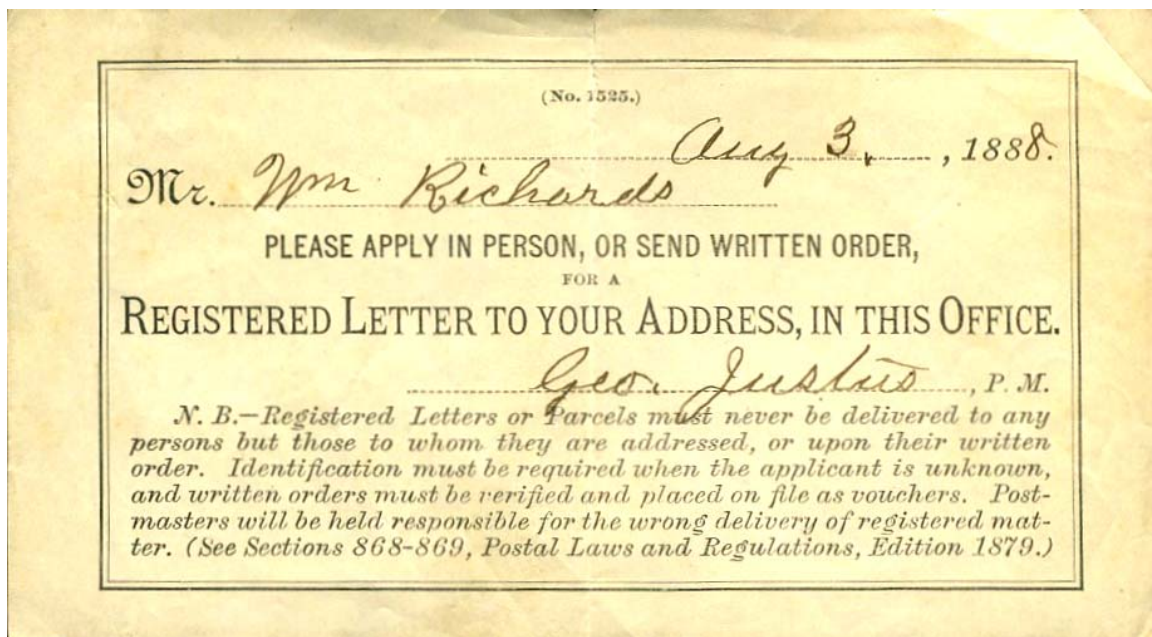 (No. 1525.)
Aug 3, , 1888.
Mr. Wm Richards
PLEASE APPLY IN PERSON, OR SEND WRITTEN ORDER,
FOR A
REGISTERED LETTER TO YOUR ADDRESS, IN THIS OFFICE.
Geo. Justus , P. M.
N. B.—Registered Letters or Parcels must never be delivered to any
persons but those to whom they are addressed, or upon their written
order. Identification must be required when the applicant is unknown,
and written orders must be verified and placed on file as vouchers. Post-
masters will be held responsible for the wrong delivery of registered mat-
ter. (See Sections 868-869, Postal Laws and Regulations, Edition 1879.)